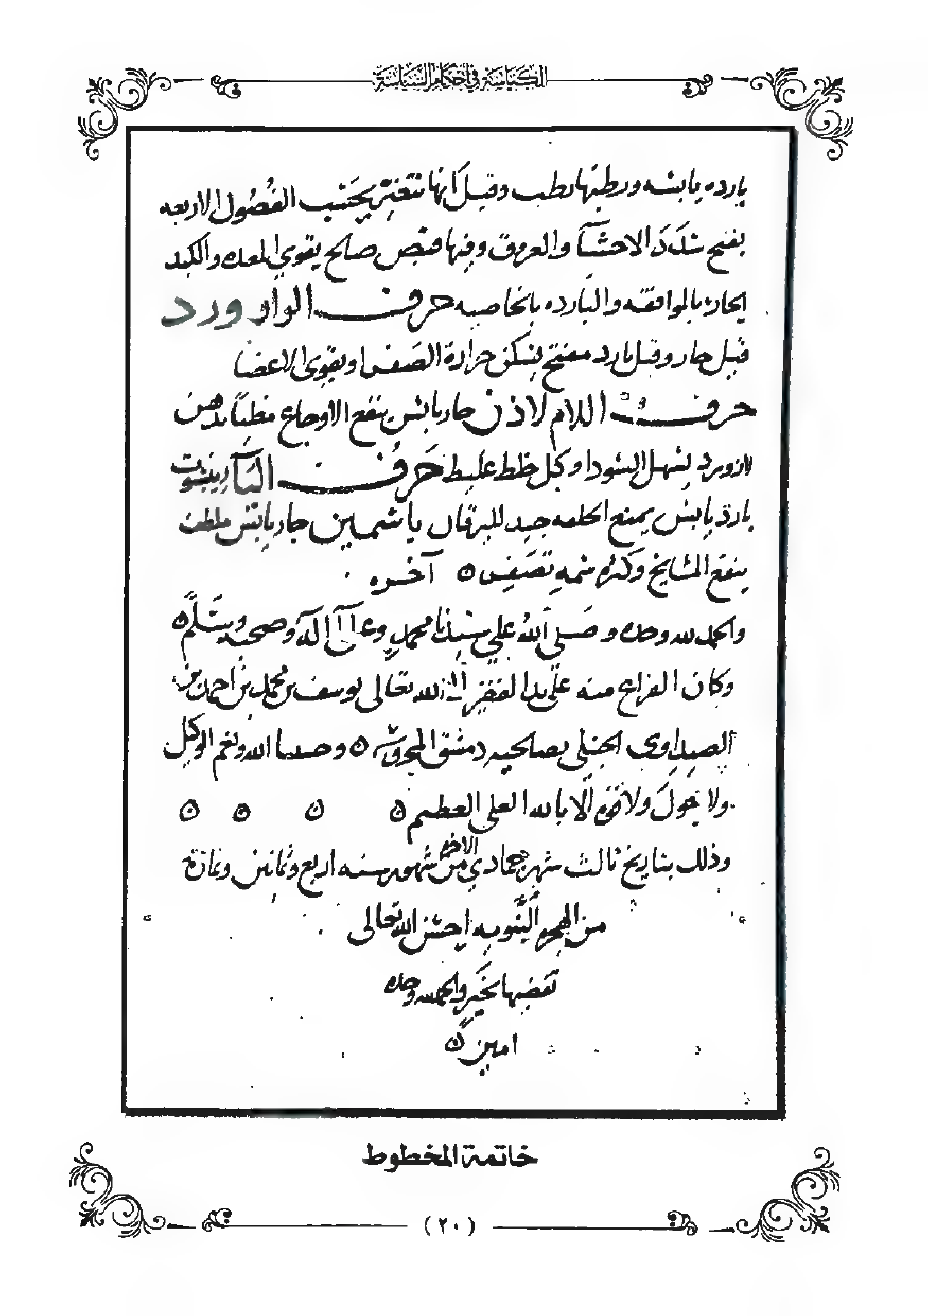 الكياسة في أحكام السياسة
بارده يابسه ورطبها رطب وقيل انها تتغير بحسب الفصول الاربعه
يفتح سدد الاحشا والعروق وفيها قبض صالح يقوي المعده والكبد
الحاره بالموافقه والبارده بالخاصيه حرف الواو ورد
قيل حار وقيل بارد مفتح يسكن حرارة الصفرا ويقوي الاعضا
حرف اللام لاذن حار يابس ينفع الاوجاع مطليا بدهن
لازورد يسهل السودا وكل خلط غليظ حرف اليا
بارد يابس يمنع الحلفه جيد لليرقان ياسمين حار يابس ملطف
ينفع المشايخ وكثرة شمه تصفر ه آخره
والحمد لله وحده وصلى الله على سيدنا محمد وعلى آله وصحبه وسلم ه
وكان الفراغ منه على يد الفقير الى الله تعالى يوسف بن محمد بن احمد بن
الصيداوي الحنبلي بصالحيه دمشق المحروسه ه وحسبنا الله ونعم الوكيل
ولا حول ولا قوة الا بالله العلي العظيم ه ه ه ه
وذلك بتاريخ ثالث شهر جمادي الاخر من شهور سنه اربع وثمانين وثمانمائة
من الهجره النبويه احسن الله تعالى
تقضيها بخير والحمد لله وحده
امين ه
خاتمة المخطوط
( ٢٠ )